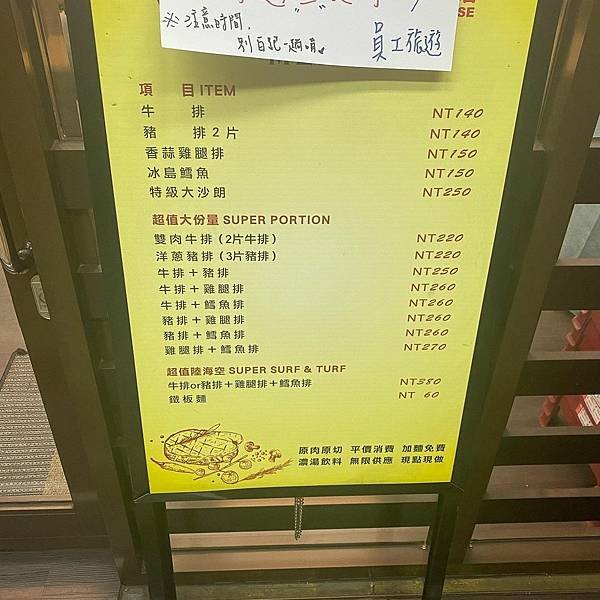 ※注意時間.
別白跑一趟唷
員工旅遊
SE
項 目 ITEM
牛 排 NT140
豬 排 2 片 NT140
香蒜雞腿排 NT150
冰島鱈魚 NT150
特級大沙朗 NT250
超值大份量 SUPER PORTION
雙肉牛排 (2片牛排) NT220
洋蔥豬排 (3片豬排) NT220
牛排+豬排 NT250
牛排+雞腿排 NT260
牛排+鱈魚排 NT260
豬排+雞腿排 NT260
豬排+鱈魚排 NT260
雞腿排+鱈魚排 NT270
超值陸海空 SUPER SURF & TURF
牛排or豬排+雞腿排+鱈魚排 NT380
鐵板麵 NT 60
原肉原切 平價消費 加麵免費
濃湯飲料 無限供應 現點現做